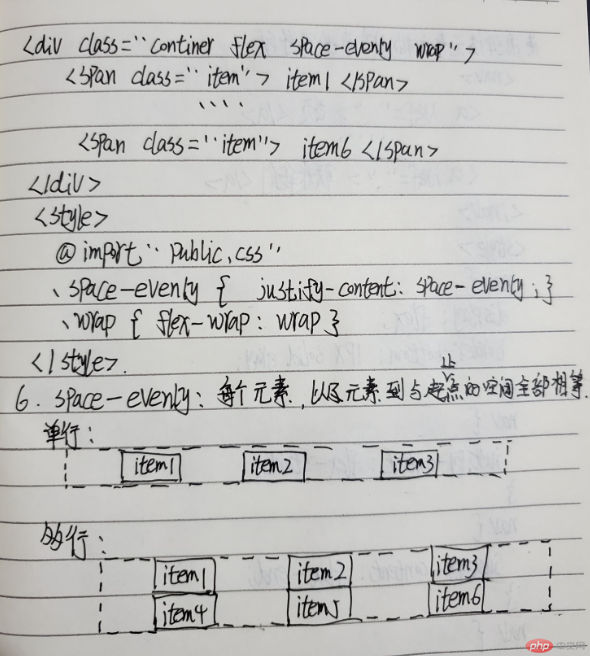 <div class="continer flex space-evenly wrap">
<span class="item"> item1 </span>
....
<span class="item"> item6 </span>
</div>
<style>
@import "public.css"
.space-evenly { justify-content: space-evenly; }
.wrap { flex-wrap: wrap }
</style>.
6. space-evenly: 每个元素, 以及元素到与起止点的空间全部相等.
单行:
item1 item2 item3
多行:
item1 item2 item3
item4 item5 item6
php 中文网